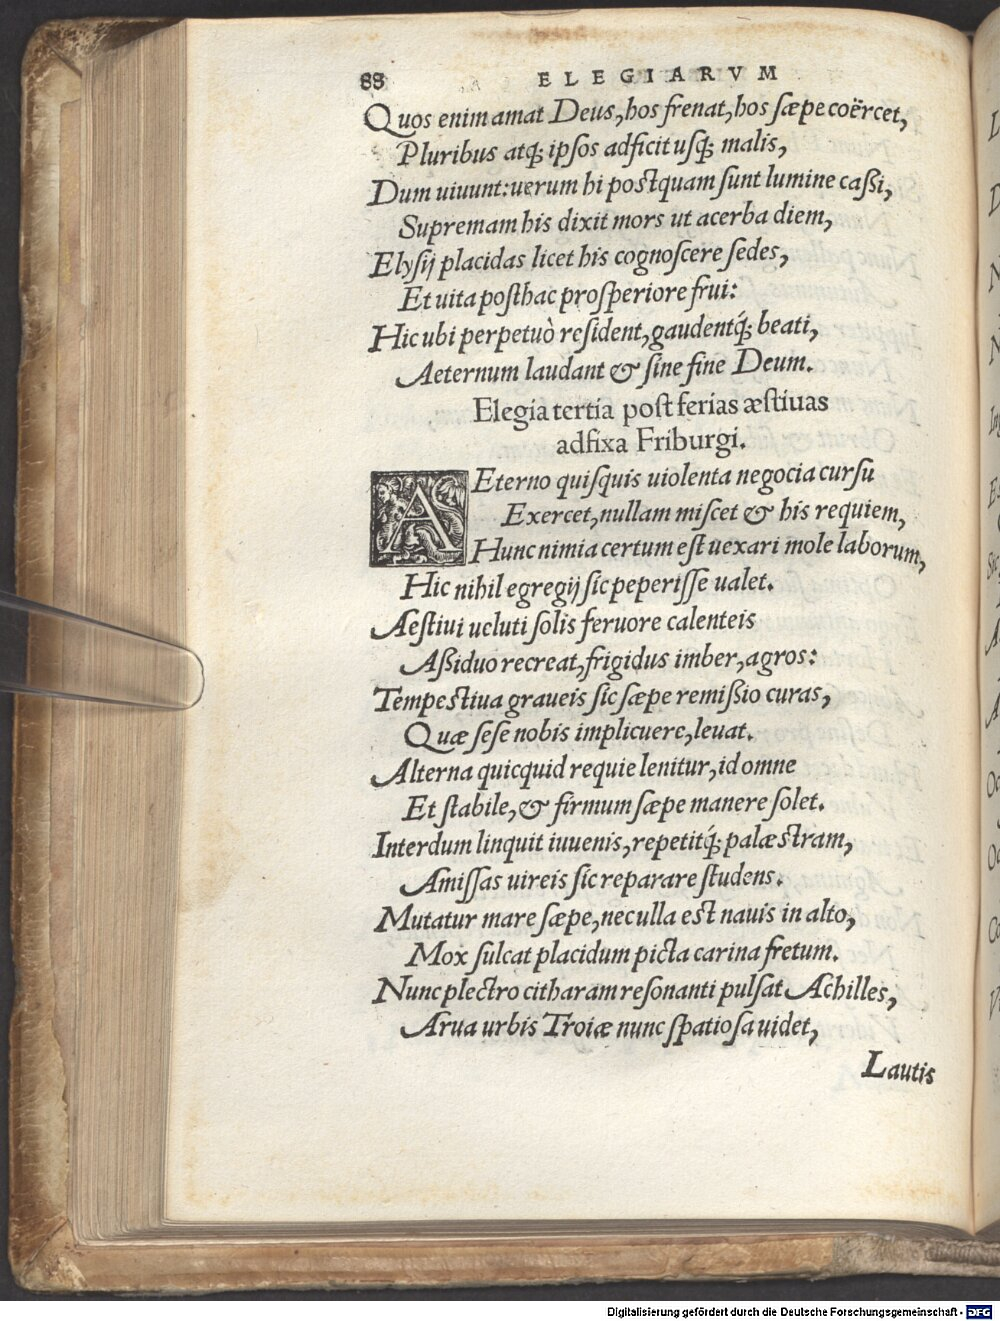 88 ELEGIARVM
Quos enim amat Deus, hos frenat, hos sæpe coërcet,
Pluribus atq; ipsos adficit usq; malis,
Dum uiuunt: uerum hi postquam sunt lumine caßi,
Supremam his dixit mors ut acerba diem,
Elysij placidas licet his cognoscere sedes,
Et uita posthac prosperiore frui:
Hic ubi perpetuò resident, gaudentq́; beati,
Aeternum laudant & sine fine Deum.
Elegia tertia post ferias æstiuas
adfixa Friburgi.
AEterno quisquis uiolenta negocia cursu
Exercet, nullam miscet & his requiem,
Hunc nimia certum est uexari mole laborum,
Hic nihil egregij sic peperisse ualet.
Aestiui ueluti solis feruore calenteis
Aßiduo recreat, frigidus imber, agros:
Tempestiua graueis sic sæpe remißio curas,
Quæ sese nobis implicuere, leuat.
Alterna quicquid requie lenitur, id omne
Et stabile, & firmum sæpe manere solet.
Interdum linquit iuuenis, repetitq́; palæstram,
Amissas uireis sic reparare studens.
Mutatur mare sæpe, nec ulla est nauis in alto,
Mox sulcat placidum picta carina fretum.
Nunc plectro citharam resonanti pulsat Achilles,
Arua urbis Troiæ nunc spatiosa uidet,
Lautis
Digitalisierung gefördert durch die Deutsche Forschungsgemeinschaft - DFG